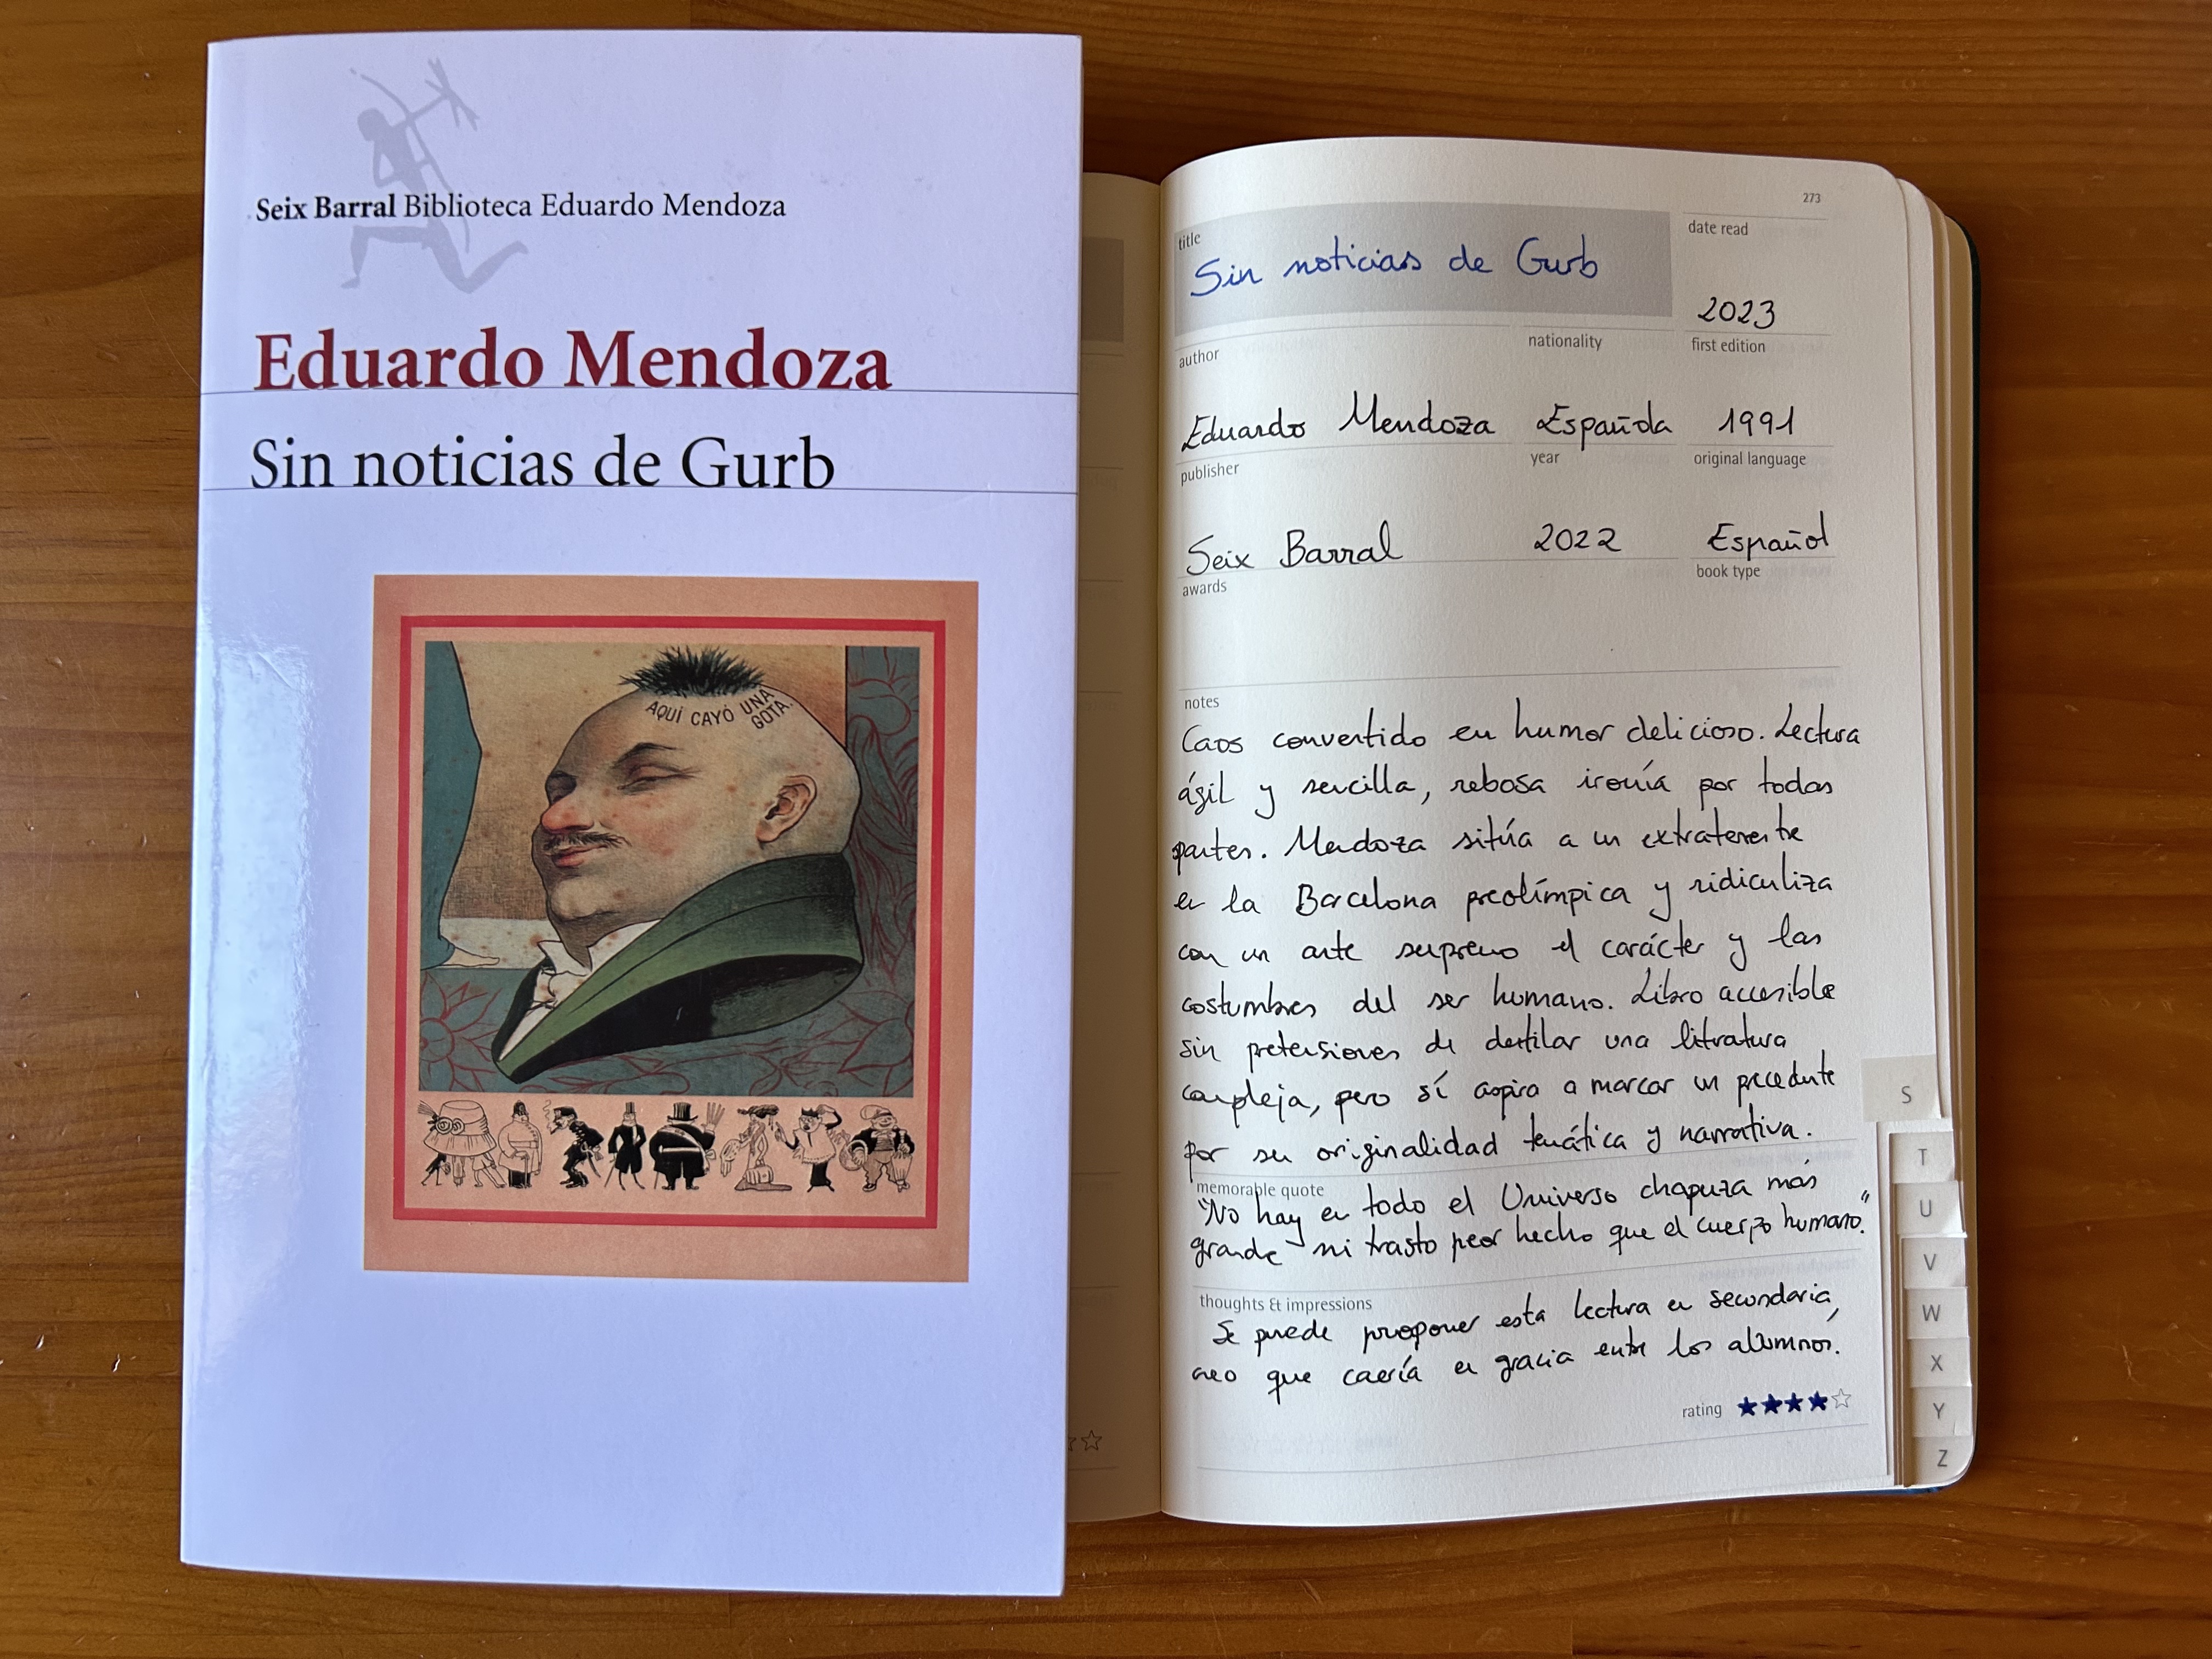 Seix Barral Biblioteca Eduardo Mendoza
Eduardo Mendoza
Sin noticias de Gurb
AQUÍ CAYÓ UNA
GOTA.
273
title
date read
Sin noticias de Gurb
2023
author
nationality
first edition
Eduardo Mendoza
Española
1991
publisher
year
original language
Seix Barral
2022
Español
awards
book type
notes
Caos convertido en humor delicioso. Lectura
ágil y sencilla, rebosa ironía por todas
partes. Mendoza sitúa a un extraterrestre
en la Barcelona preolímpica y ridiculiza
con un arte supremo el carácter y las
costumbres del ser humano. Libro accesible
sin pretensiones de destilar una literatura
compleja, pero sí aspira a marcar un precedente
por su originalidad temática y narrativa.
memorable quote
"No hay en todo el Universo chapuza más
grande ni trasto peor hecho que el cuerpo humano."
thoughts & impressions
Se puede proponer esta lectura en secundaria,
creo que caería en gracia entre los alumnos.
rating
S
T
U
V
W
X
Y
Z